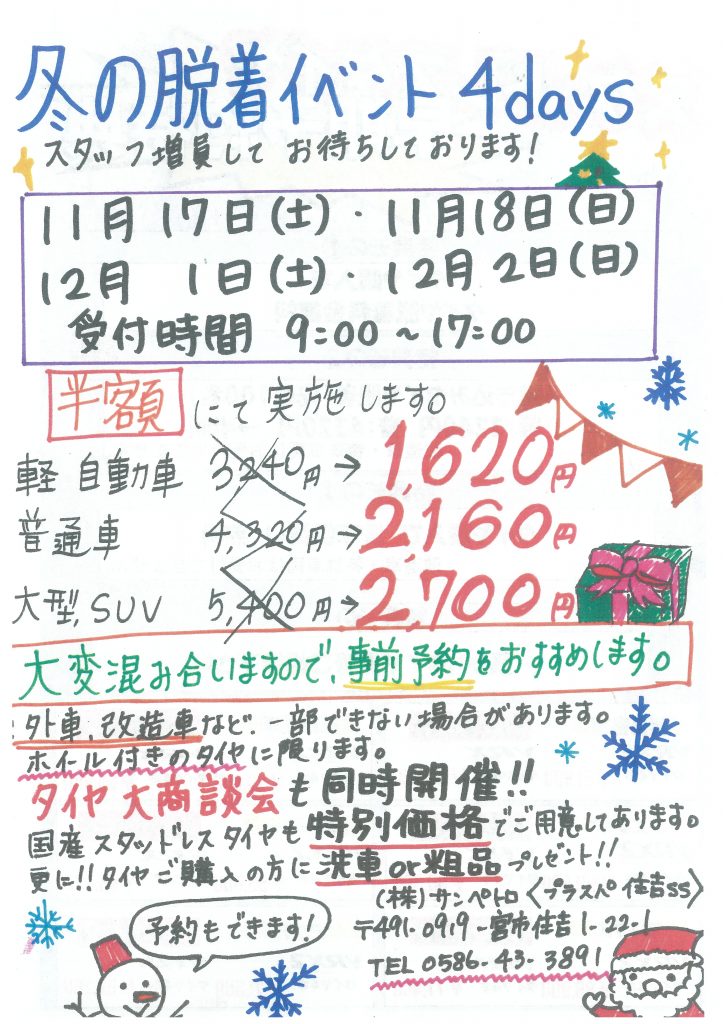 冬の脱着イベント 4days
スタッフ増員して お待ちしております!
11月 17日(土)・11月18日(日)
12月 1日(土)・12月 2日(日)
受付時間 9:00 ~ 17:00
半額 にて実施します。
軽自動車 3240円 → 1,620円
普通車 4,320円 → 2,160円
大型, SUV 5,400円 → 2,700円
大変混み合いますので、事前予約をおすすめします。
外車、改造車など、一部できない場合があります。
ホイール付きのタイヤに限ります。
タイヤ大商談会も同時開催!!
国産スタッドレスタイヤも特別価格でご用意してあります。
更に!! タイヤご購入の方に洗車or粗品プレゼント!!
(株)サンペトロ〈プラスパ住吉SS〉
予約もできます!
〒491-0919 一宮市住吉1-22-1
TEL 0586-43-3891